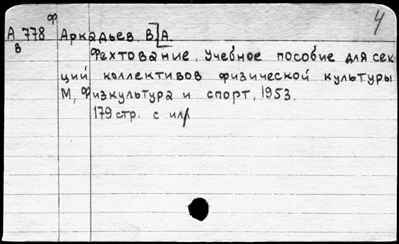 ф 4
А 778 Аркадьев, В.]А.
в Фехтование. Учебное пособие для сек-
ций коллективов физической культуры
М, Физкультура и спорт, 1953.
179 стр. с илл